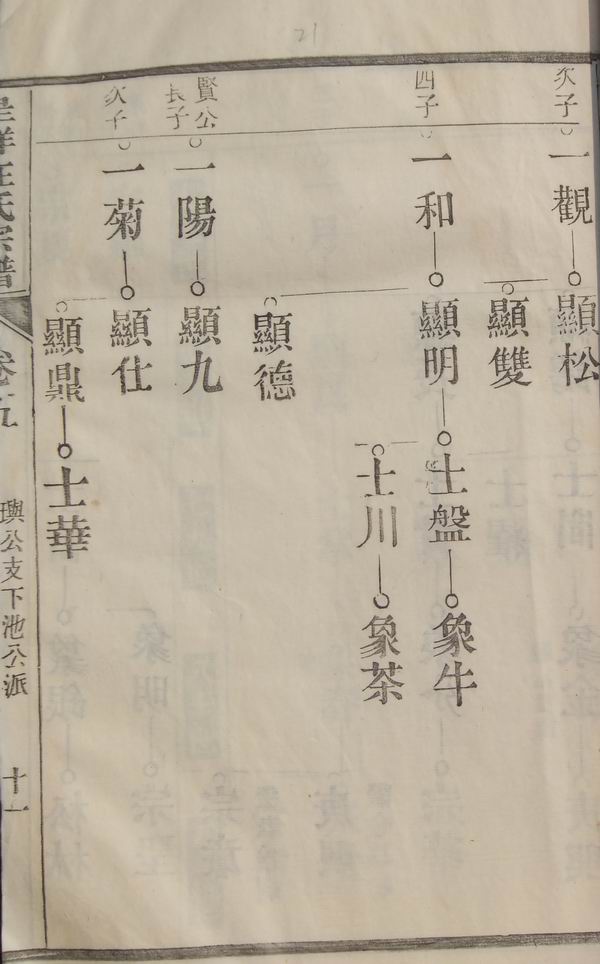 21
次子
一觀
顯松
顯雙
四子
一和
顯明
士盤
象牛
士川
象茶
顯德
賢公
長子
一陽
顯九
次子
一菊
顯仕
顯鼎
士華
汪氏宗譜
卷五
璵公支下池公派
十一